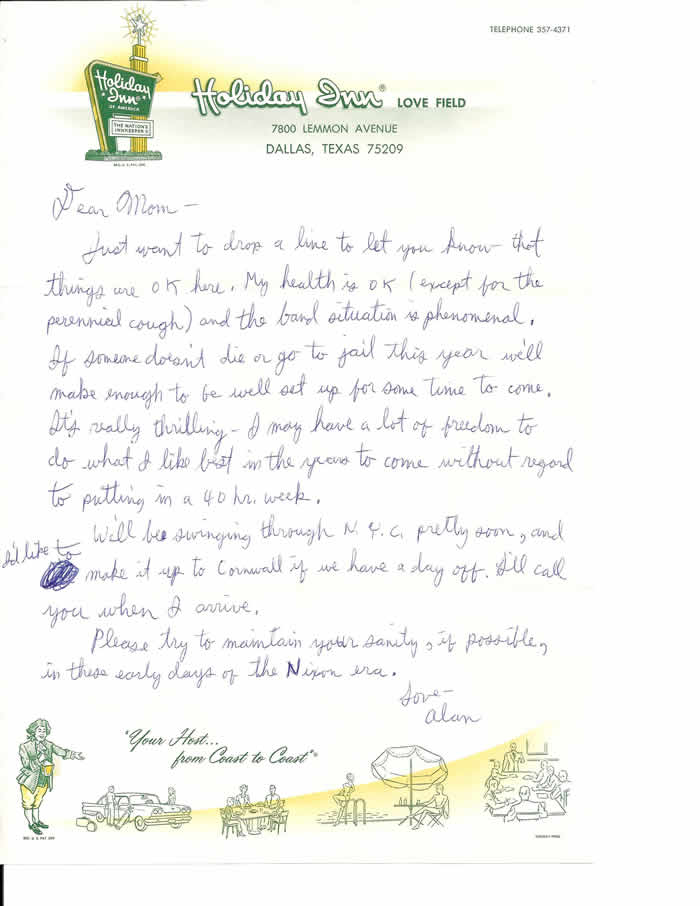 TELEPHONE 357-4371
Holiday Inn®
OF AMERICA
THE NATION'S
INNKEEPER
Holiday Inn® LOVE FIELD
7800 LEMMON AVENUE
DALLAS, TEXAS 75209
Dear Mom –
Just want to drop a line to let you know that
things are OK here. My health is OK (except for the
perennial cough) and the band situation is phenomenal.
If someone doesn't die or go to jail this year we'll
make enough to be well set up for some time to come.
It's really thrilling – I may have a lot of freedom to
do what I like best in the years to come without regard
to putting in a 40 hr. week.
We'll be swinging through N.Y.C. pretty soon, and
I'd like to
make it up to Cornwall if we have a day off. I'll call
you when I arrive.
Please try to maintain your sanity, if possible,
in these early days of the Nixon era.
Love –
Alan
"Your Host...
from Coast to Coast"®